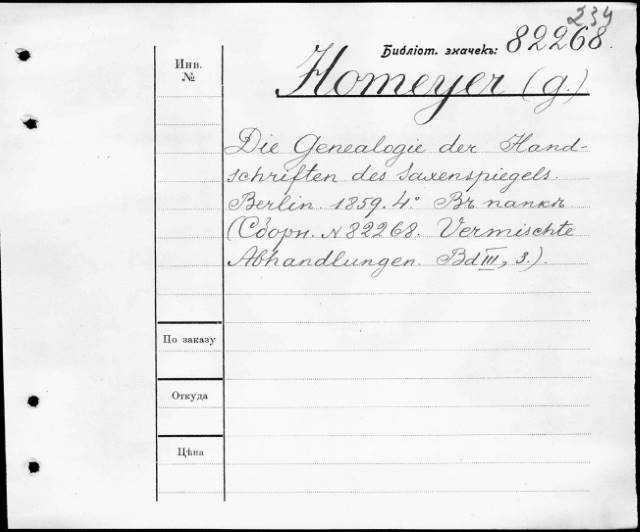 234
Библіот. значекъ: 82268.
Инв.
№
Homeyer (G.)
Die Genealogie der Hand-
schriften des Saxenspiegels.
Berlin. 1859. 4.° Въ папкѣ
(Сборн. №82268. Vermischte
Abhandlungen. Bd III, 3.).
По заказу
Откуда
Цѣна